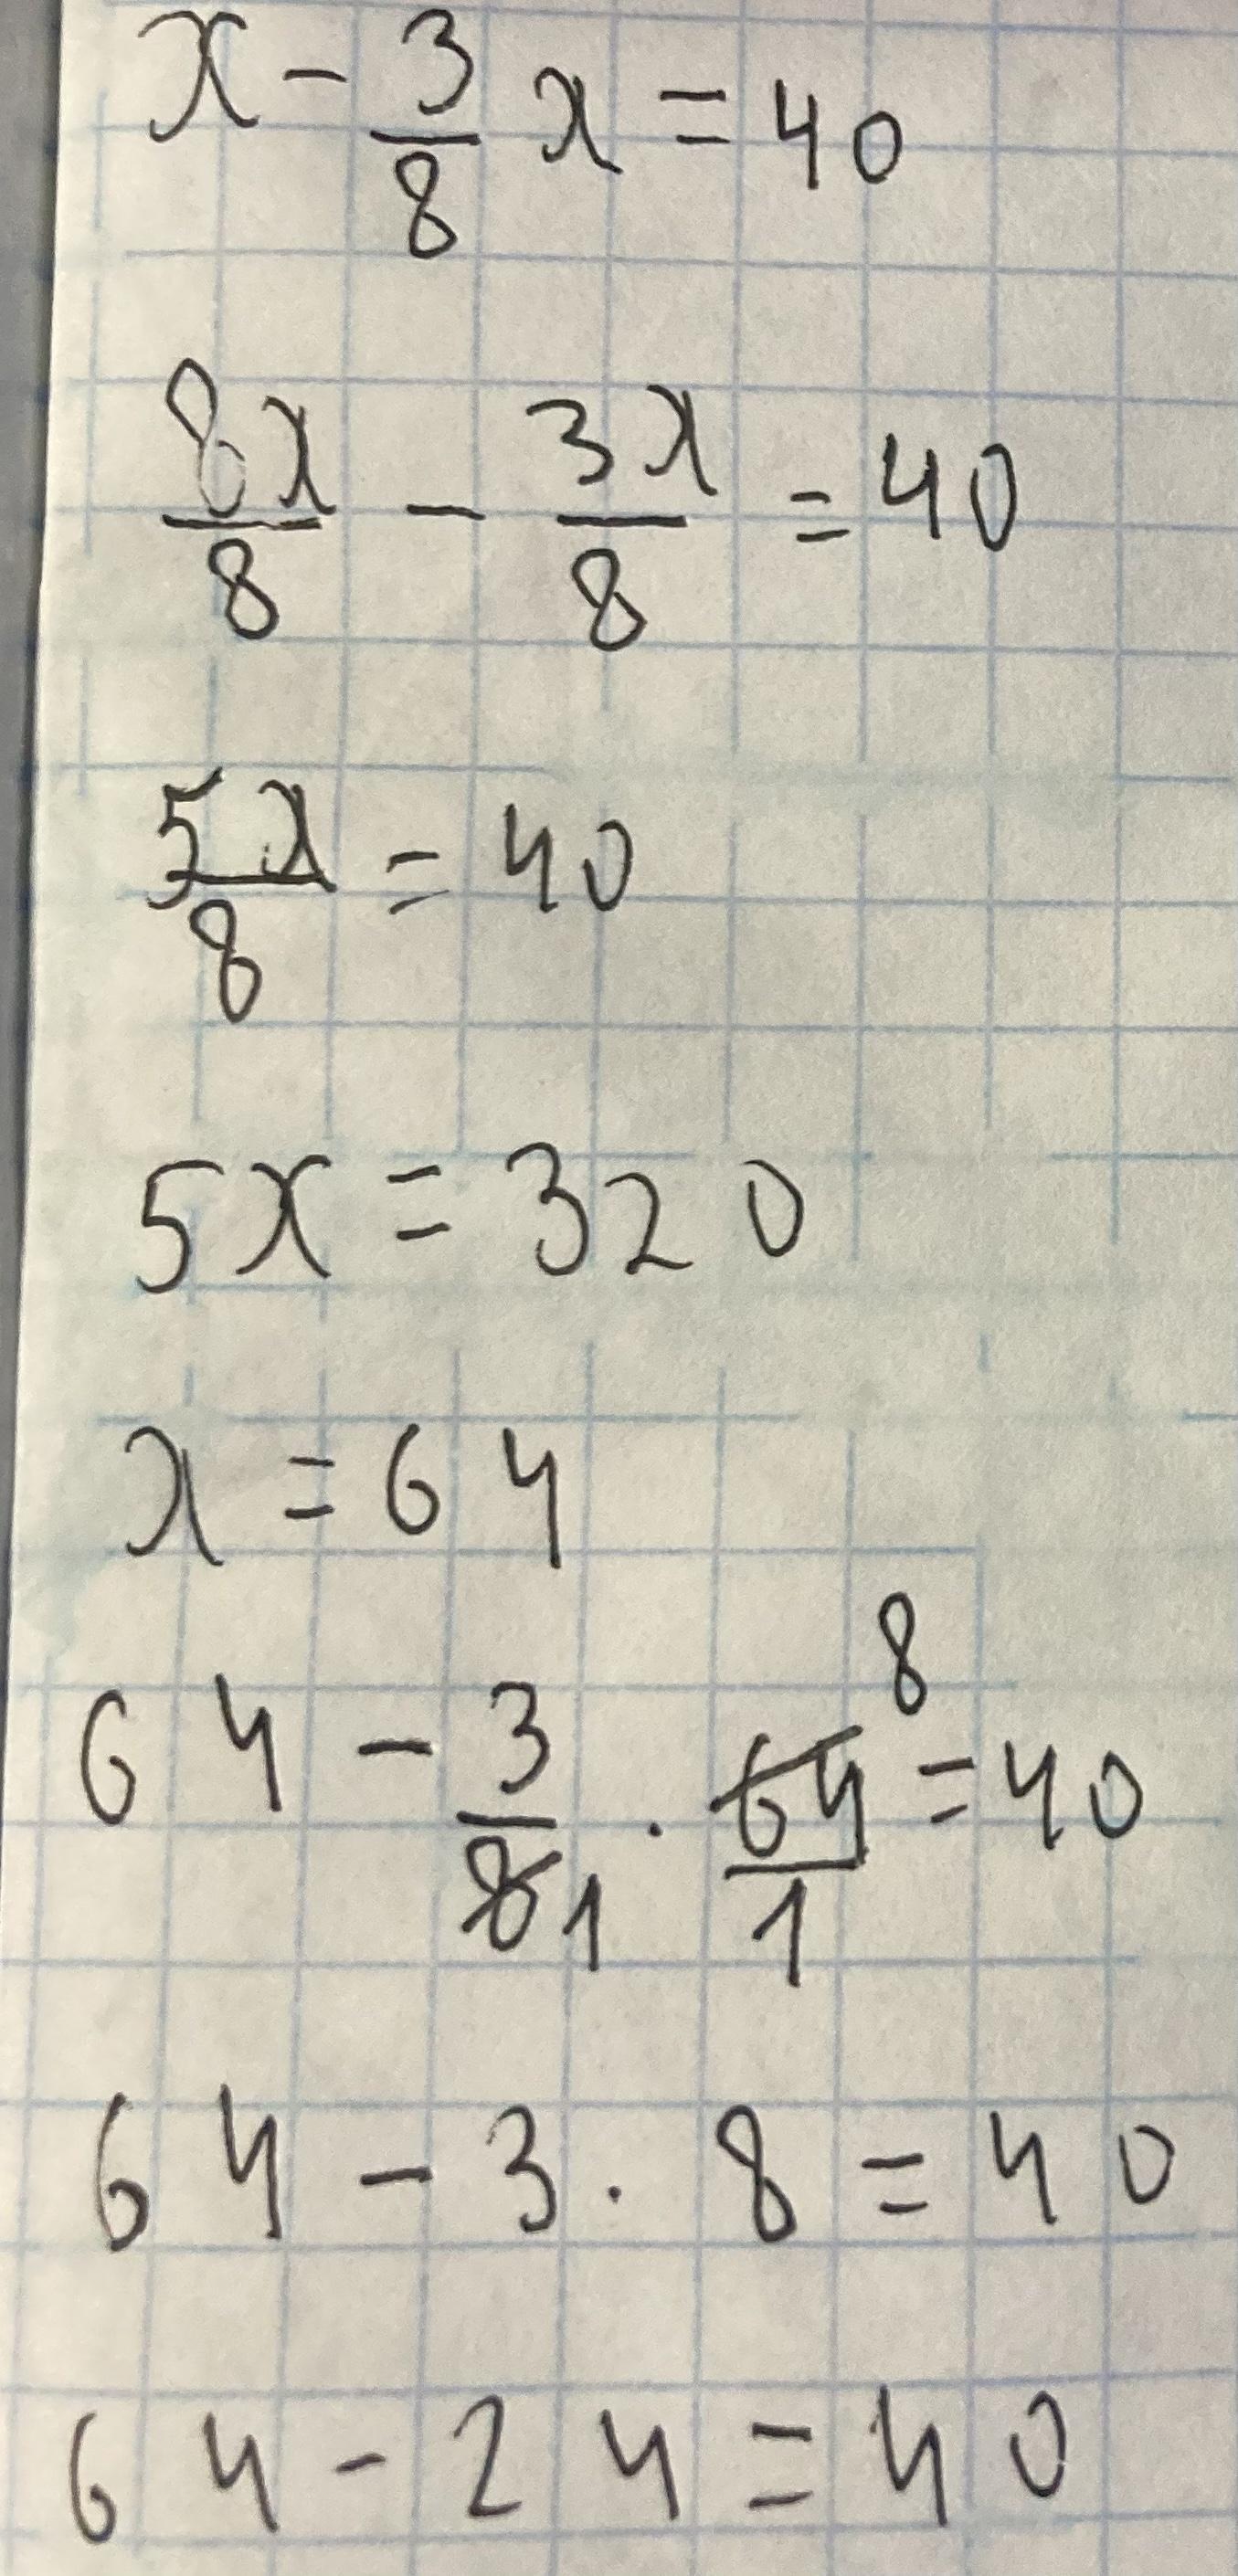 x - 3/8 x = 40
8x/8 - 3x/8 = 40
5x/8 = 40
5x = 320
x = 64
64 - 3/8 1 · 64/1 8 = 40
64 - 3 · 8 = 40
64 - 24 = 40